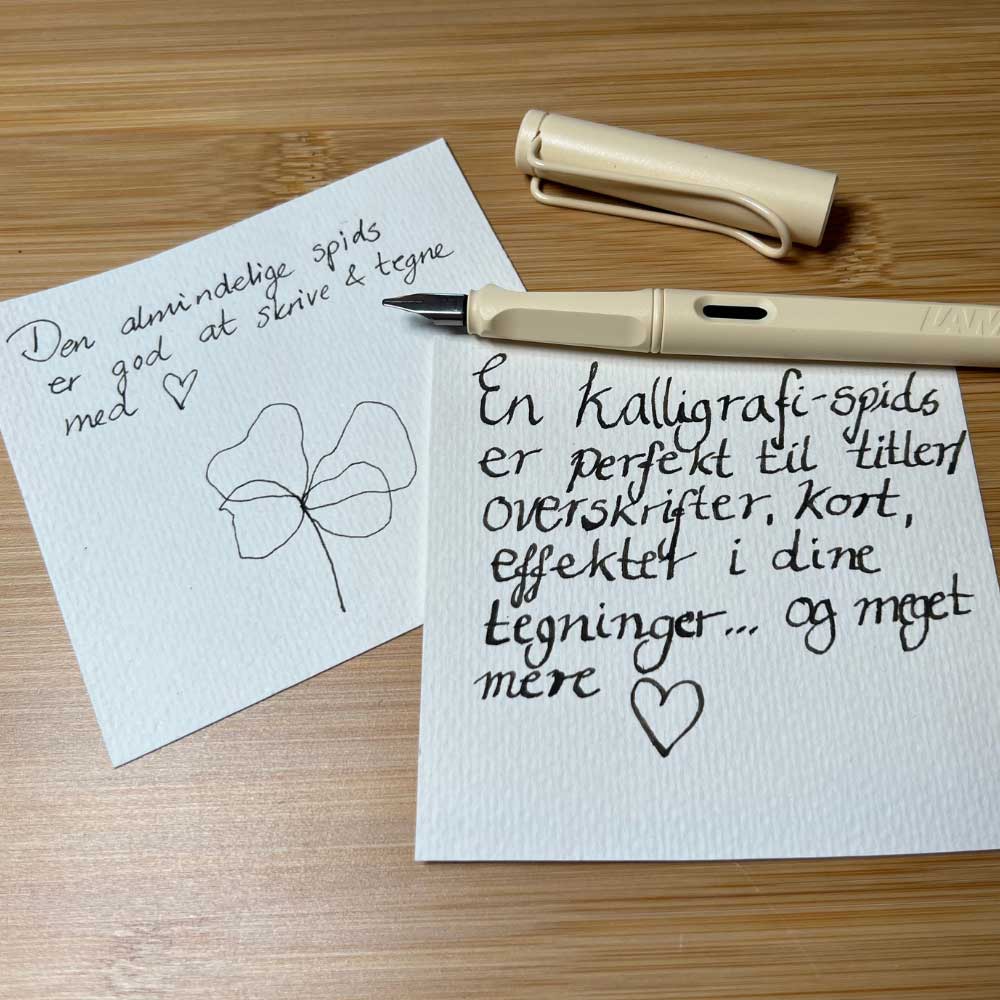 Den almindelige spids
er god at skrive & tegne
med ♡
LAM
En kalligrafi-spids
er perfekt til titler/
overskrifter, kort,
effekter i dine
tegninger... og meget
mere ♡